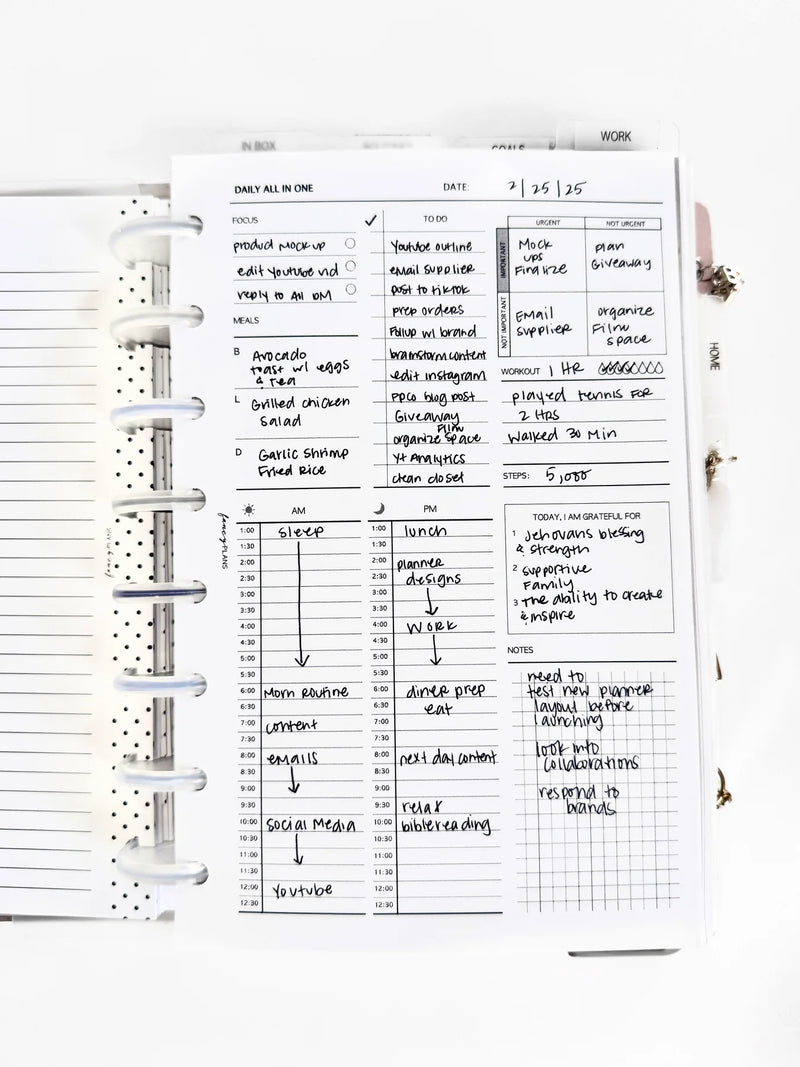 IN BOX
GOALS
WORK
DAILY ALL IN ONE
DATE: 2/25/25
FOCUS
product mock up
edit Youtube vid
reply to All DM
MEALS
B Avocado
toast w/ eggs
& tea
L Grilled chicken
Salad
D Garlic Shrimp
Fried Rice
✓ TO DO
Youtube outline
email supplier
post to tiktok
prep orders
Follup w/ brand
brainstorm content
edit instagram
PPCO blog post
Giveaway
Film
organize space
YT Analytics
clean closet
URGENT
NOT URGENT
IMPORTANT
Mock
ups
Finalize
plan
Giveaway
NOT IMPORTANT
EMail
supplier
organize
Film
space
WORKOUT 1 HR
played tennis FOR
2 HRS
Walked 30 Min
STEPS: 5,000
fancyPLANS
AM
1:00 sleep
1:30
2:00
2:30
3:00
3:30
4:00
4:30
5:00
5:30
6:00 Morn Routine
6:30
7:00 content
7:30
8:00 emails
8:30
9:00
9:30
10:00 Social Media
10:30
11:00
11:30
12:00 Youtube
12:30
PM
1:00 lunch
1:30
2:00 planner
2:30 designs
3:00
3:30
4:00 WORK
4:30
5:00
5:30
6:00 diner prep
6:30 eat
7:00
7:30
8:00 next day content
8:30
9:00
9:30 relax
10:00 bible reading
10:30
11:00
11:30
12:00
12:30
TODAY, I AM GRATEFUL FOR
1 Jehovahs blessing
& strength
2 supportive
Family
3 The ability to create
& inspire
NOTES
need to
test new planner
layout before
launching
look into
collaborations
respond to
brands
HOME